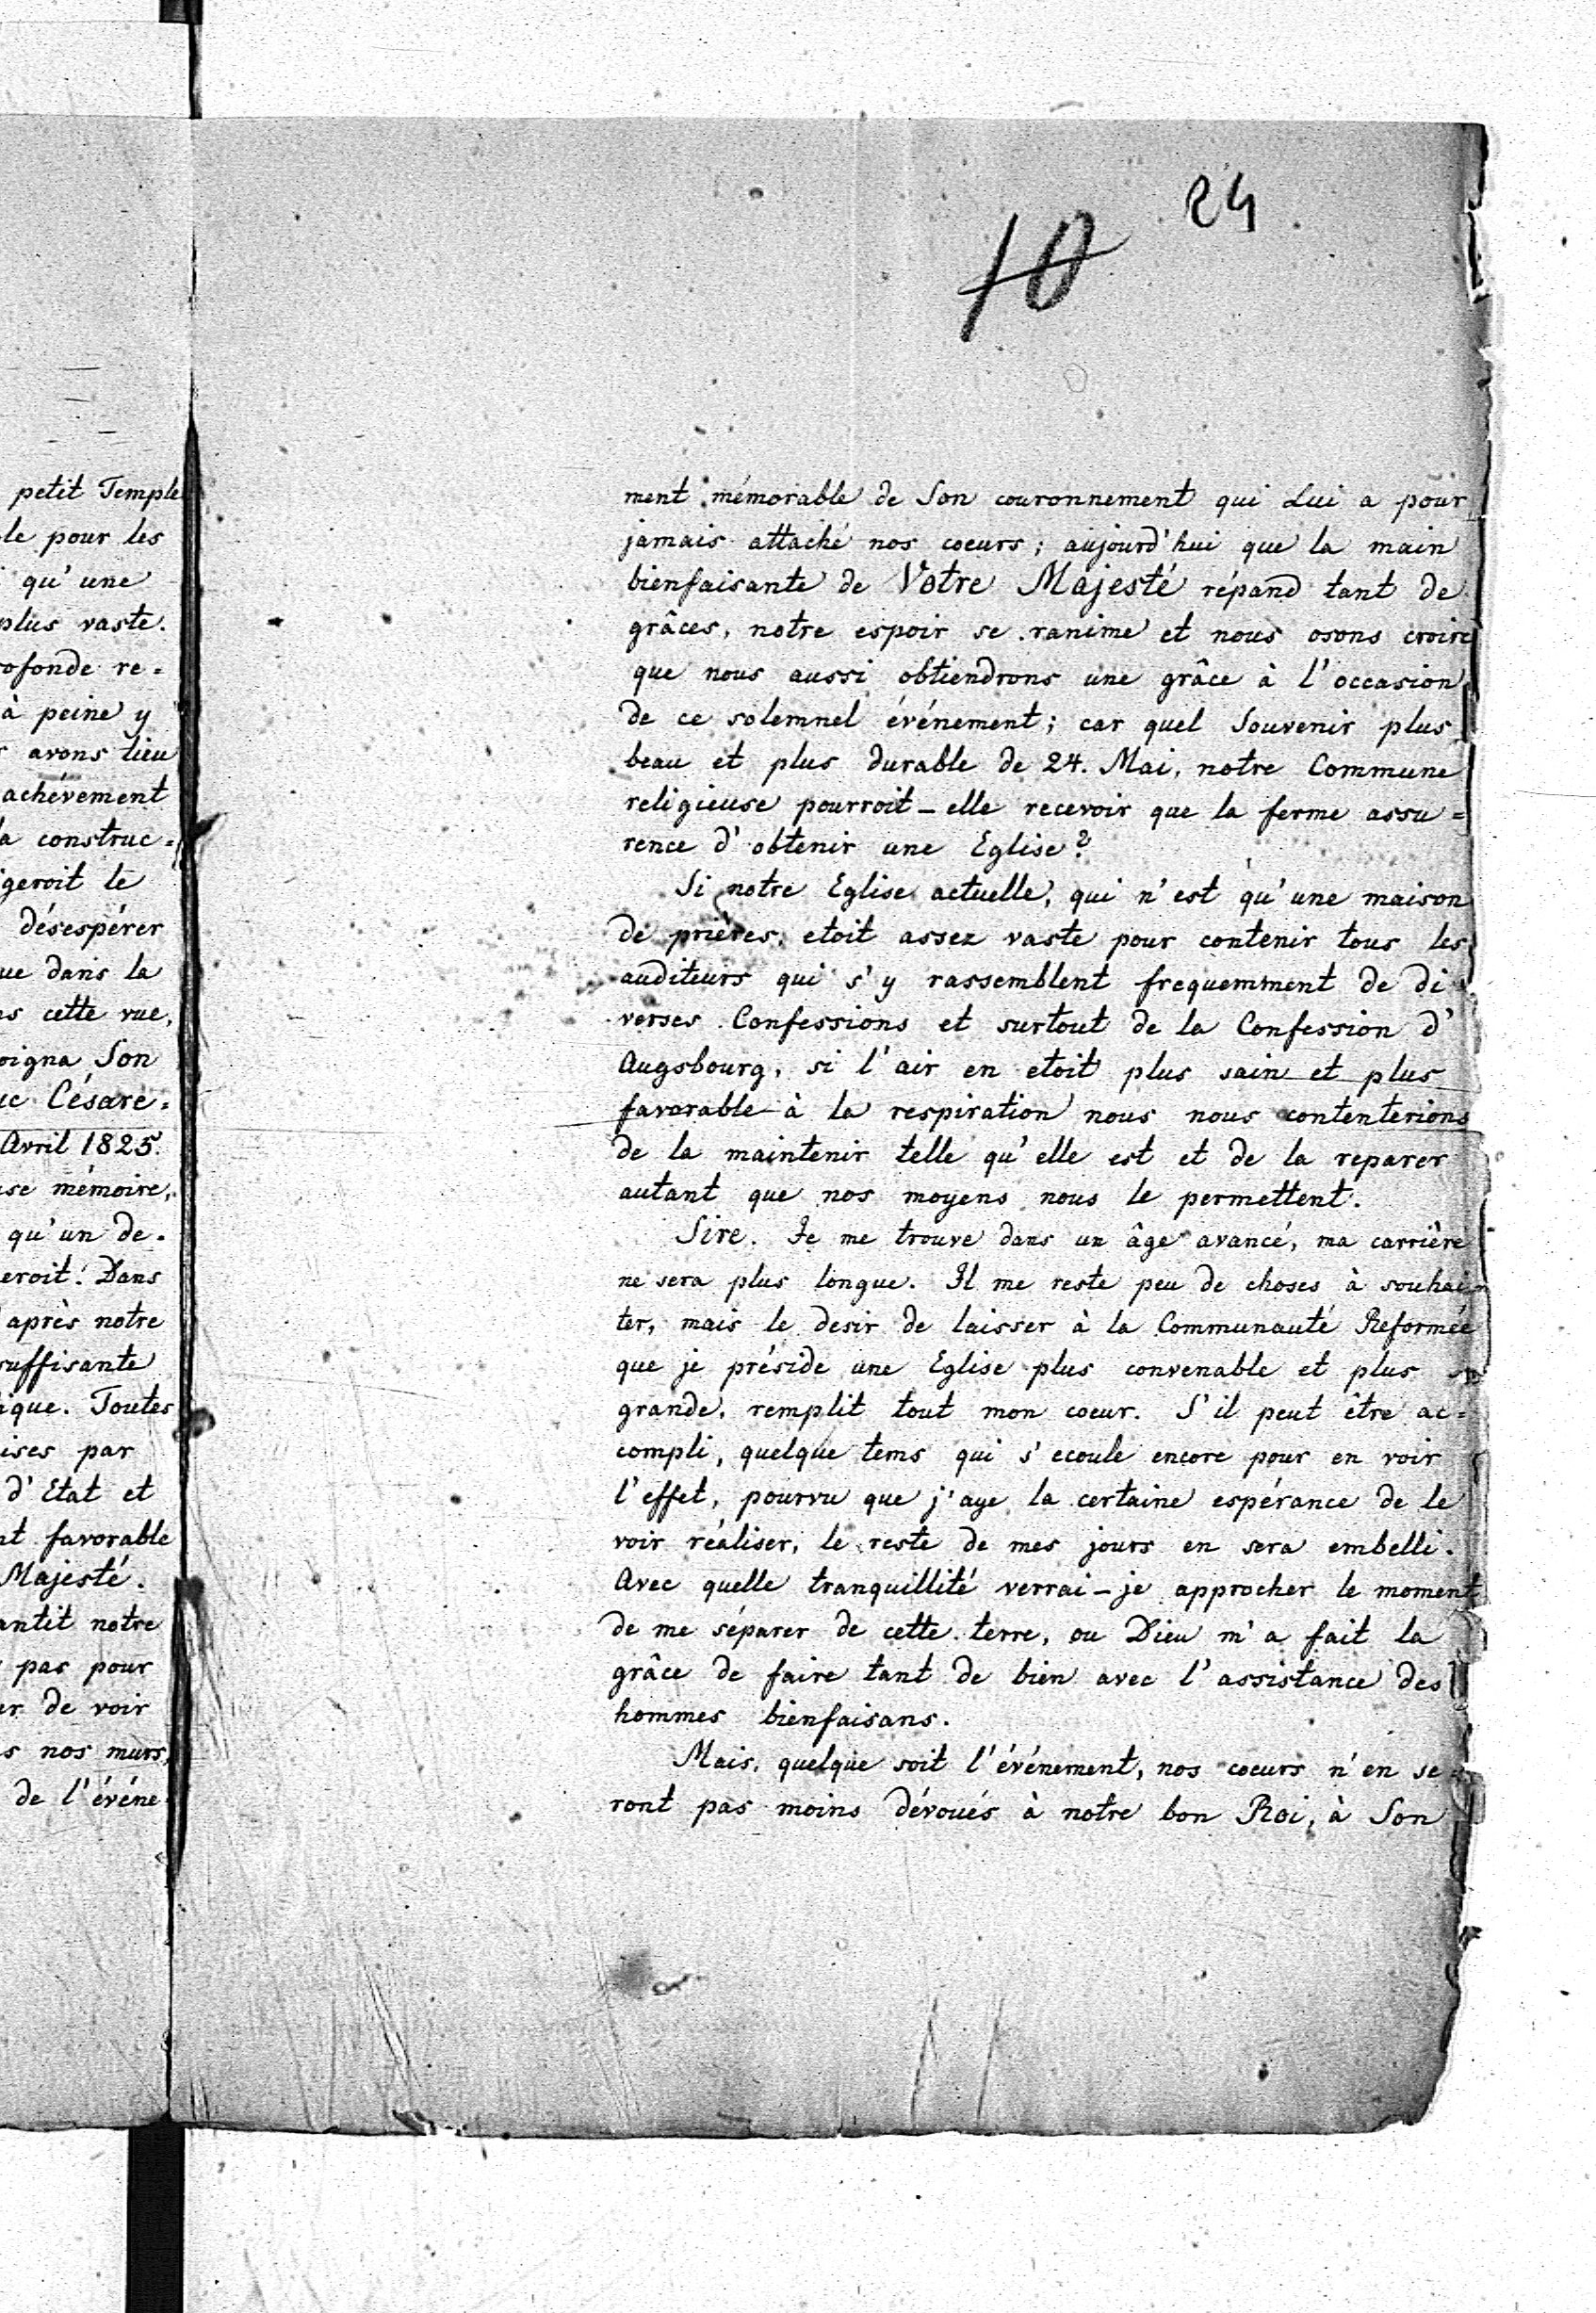 24
10
petit Temple
le pour les
qu'une
plus vaste.
rofonde re=
à peine y
avons lieu
achévement
a construc=
geroit le
désespérer
ue dans la
s cette vue,
oigna Son
uc Césare=
Avril 1825.
use mémoire,
qu'un de.
eroit. Dans
après notre
suffisante
ique. Toutes
ises par
d'Etat et
nt favorable
Majesté.
antit notre
pas pour
er de voir
s nos murs,
de l'événe
ment mémorable de Son couronnement qui Lui a pour
jamais attaché nos coeurs; aujourd'hui que la main
bienfaisante de Votre Majesté répand tant de
grâces, notre espoir se ranime et nous osons croire
que nous aussi obtiendrons une grâce à l'occasion
de ce solemnel événement; car quel Souvenir plus
beau et plus durable de 24. Mai, notre Commune
religieuse pourroit-elle recevoir que la ferme assu=
rence d'obtenir une Eglise?
Si notre Eglise actuelle, qui n'est qu'une maison
de prières, etoit assez vaste pour contenir tous les
auditeurs qui s'y rassemblent frequemment de di
verses Confessions et surtout de la Confession d'
Augsbourg, si l'air en etoit plus sain et plus
favorable à la respiration nous nous contenterions
de la maintenir telle qu'elle est et de la reparer
autant que nos moyens nous le permettent.
Sire. Je me trouve dans un âge avancé, ma carrière
ne sera plus longue. Il me reste peu de choses à souhai
ter, mais le desir de laisser à la Communauté Reformée
que je préside une Eglise plus convenable et plus
grande, remplit tout mon coeur. S'il peut être ac=
compli, quelque tems qui s'ecoule encore pour en voir
l'effet, pourvu que j'aye la certaine espérance de le
voir réaliser, le reste de mes jours en sera embelli.
Avec quelle tranquillité verrai-je approcher le moment
de me séparer de cette terre, ou Dieu m'a fait la
grâce de faire tant de bien avec l'assistance des
hommes bienfaisans.
Mais, quelque soit l'événement, nos coeurs n'en se
ront pas moins dévoués à notre bon Roi, à Son